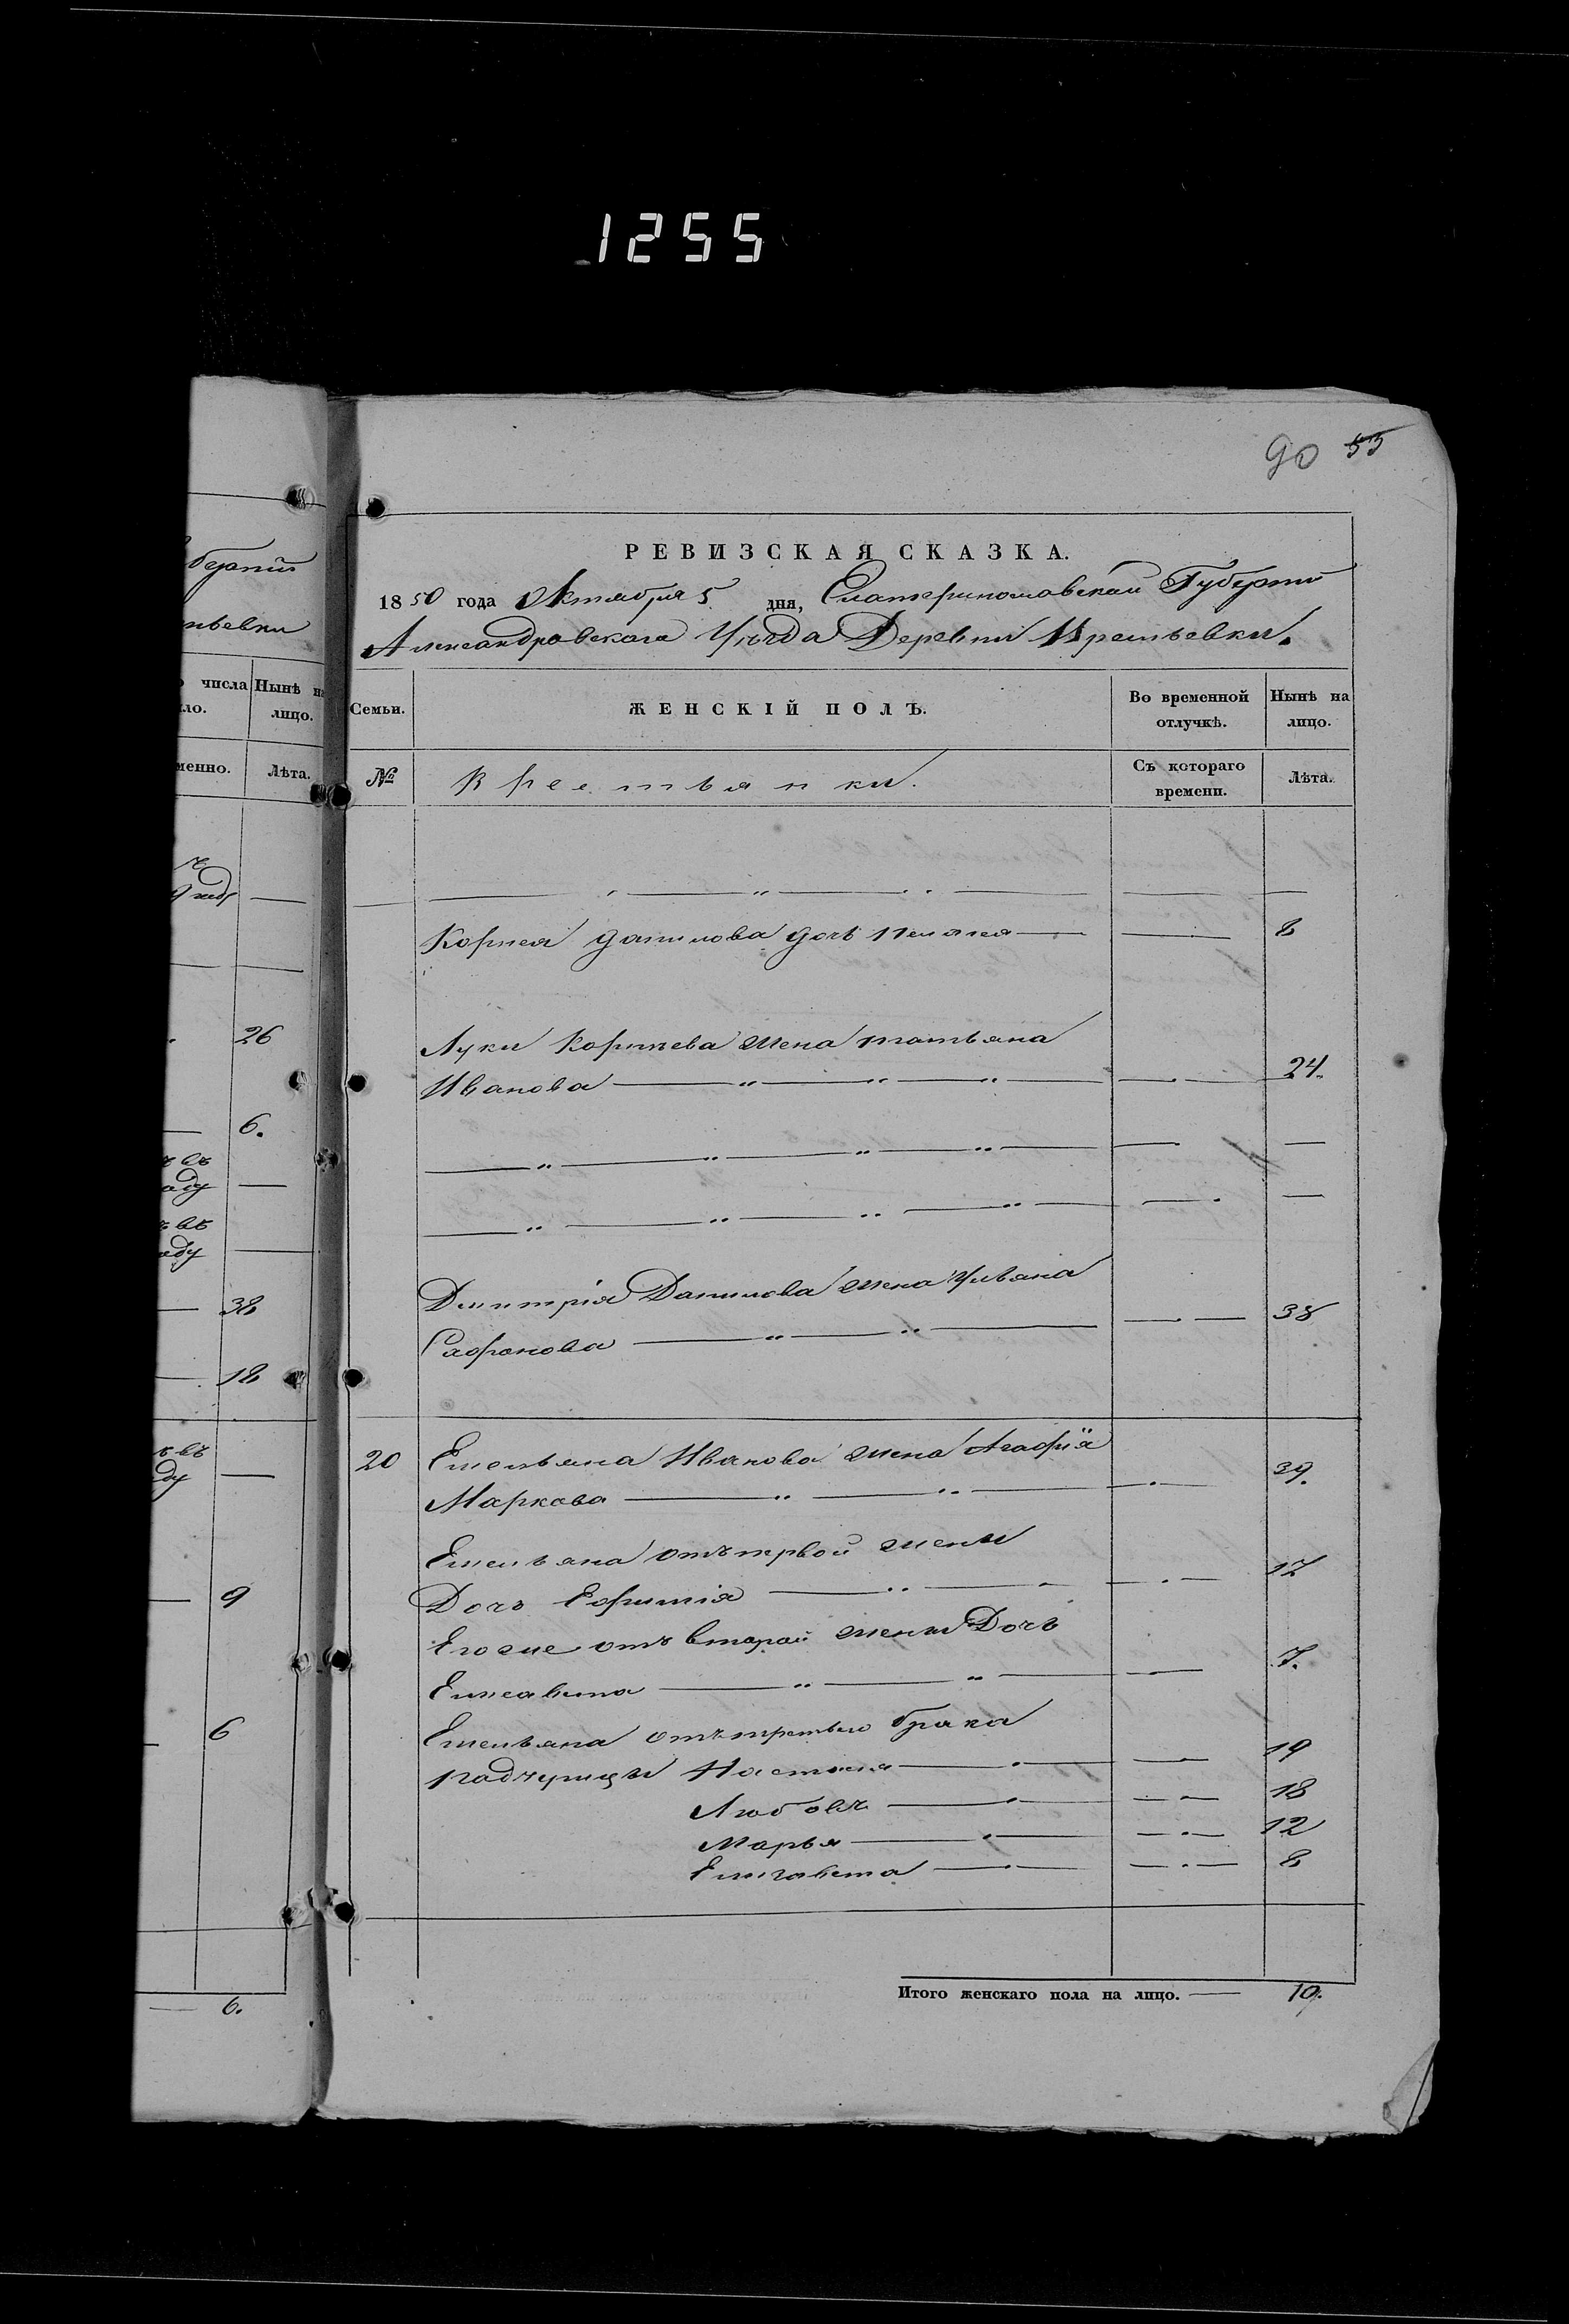 1255
90 55
РЕВИЗСКАЯ СКАЗКА.
1850 года Октября 5 дня, Екатеринославской Губерніи
Александровскага Уѣзда Деревни
Семьи. ЖЕНСКІЙ ПОЛЪ. Во временной отлучкѣ. Нынѣ на лицо.
№ Крестьянки. Съ котораго времени. Лѣта.
Корнея Данилова дочь Пелагея — — 8
Луки Корнѣева жена татьяна
Иванова — „ — „ — „ — — 24.
— „ — „ — „ — „ — — —
— „ — „ — „ — „ — — —
Дмитрія Данилова жена Ульяна
Сафронова — „ — „ — — 38
20 Емельяна Иванова жена Агафія
Маркова — „ — „ — — 39.
Емельяна отъ первой жены
Дочь Ефимія — „ — — 17
Его же отъ второй жены Дочь
Елисавета — „ — „ — — 7.
Емельяна отъ третьего брака
падчерицы Настасья — — 19
Любовь — — 18
Марья — — 12
Елизавета — — 8
Итого женскаго пола на лицо. — 10.
берніи
тьевки
числа Нынѣ на
ло. лицо.
менно. Лѣта.
26
6.
ъ въ
аду —
ъ въ
аду —
— 38
— 18
ъ въ
ду —
— 9
6
— 6.